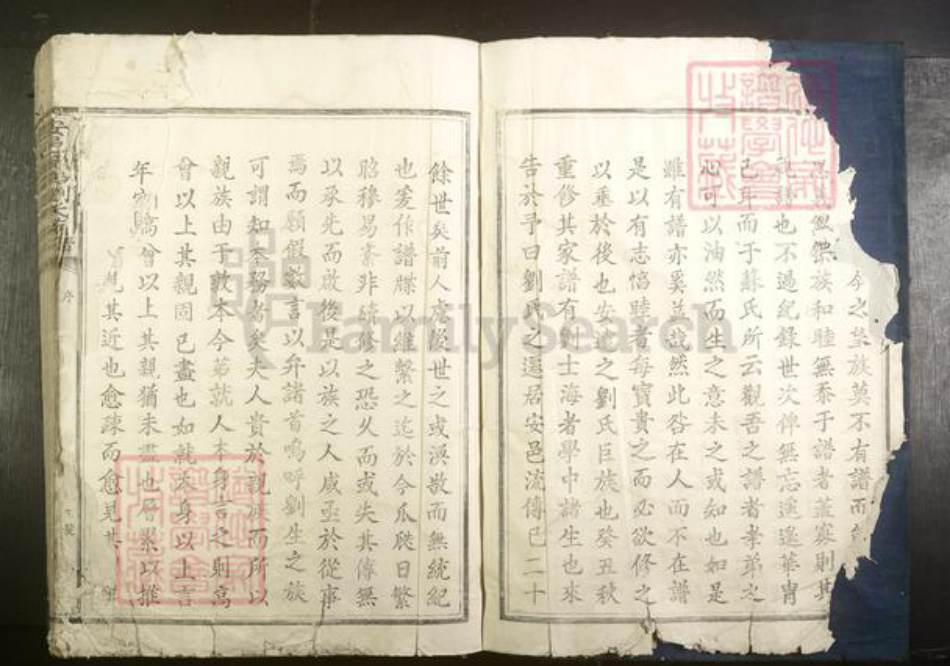 今之望族莫不有譜而
族和睦無忝于譜者蓋寡則其
譜也不過紀錄世次俾無忘遙遙華胄
已耳而于蘇氏所云觀吾之譜者孝弟之
心可以油然而生之意未之或知也如是
雖有譜亦奚益哉然此咎在人而不在譜
是以有志惇睦者每寶貴之而必欲修之
以垂於後也安邑之劉氏巨族也癸丑秋
重修其家譜有劉士海者學中諸生也來
告於予曰劉氏之遷居安邑流傳已二十
餘世矣前人慮後世之或渙散而無統紀
也爰作譜牒以維繫之迄於今瓜瓞日繁
昭穆易紊非續修之恐久而或失其傳無
以承先而啟後是以族之人咸亟於從事
焉而願假數言以弁諸首嗚呼劉生之族
可謂知本務者矣夫人貴於親族而所以
親族由于敦本今第就人本身言之則高
曾以上其親固已盡也如就本身以上言
年高曾以上其親猶未盡也層累以推
見其近也愈疎而愈見其
序
FamilySearch